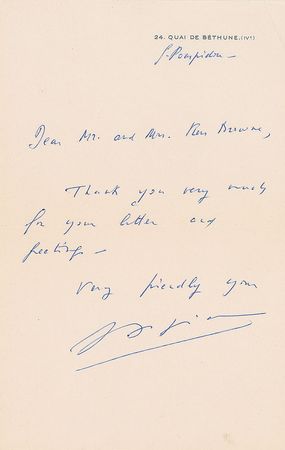 24. QUAI DE BÉTHUNE.(IVᵉ)
G. Pompidou -
Dear Mr. and Mrs. Ken Browne,
Thank you very much
for your letter and
greetings -
Very friendly your